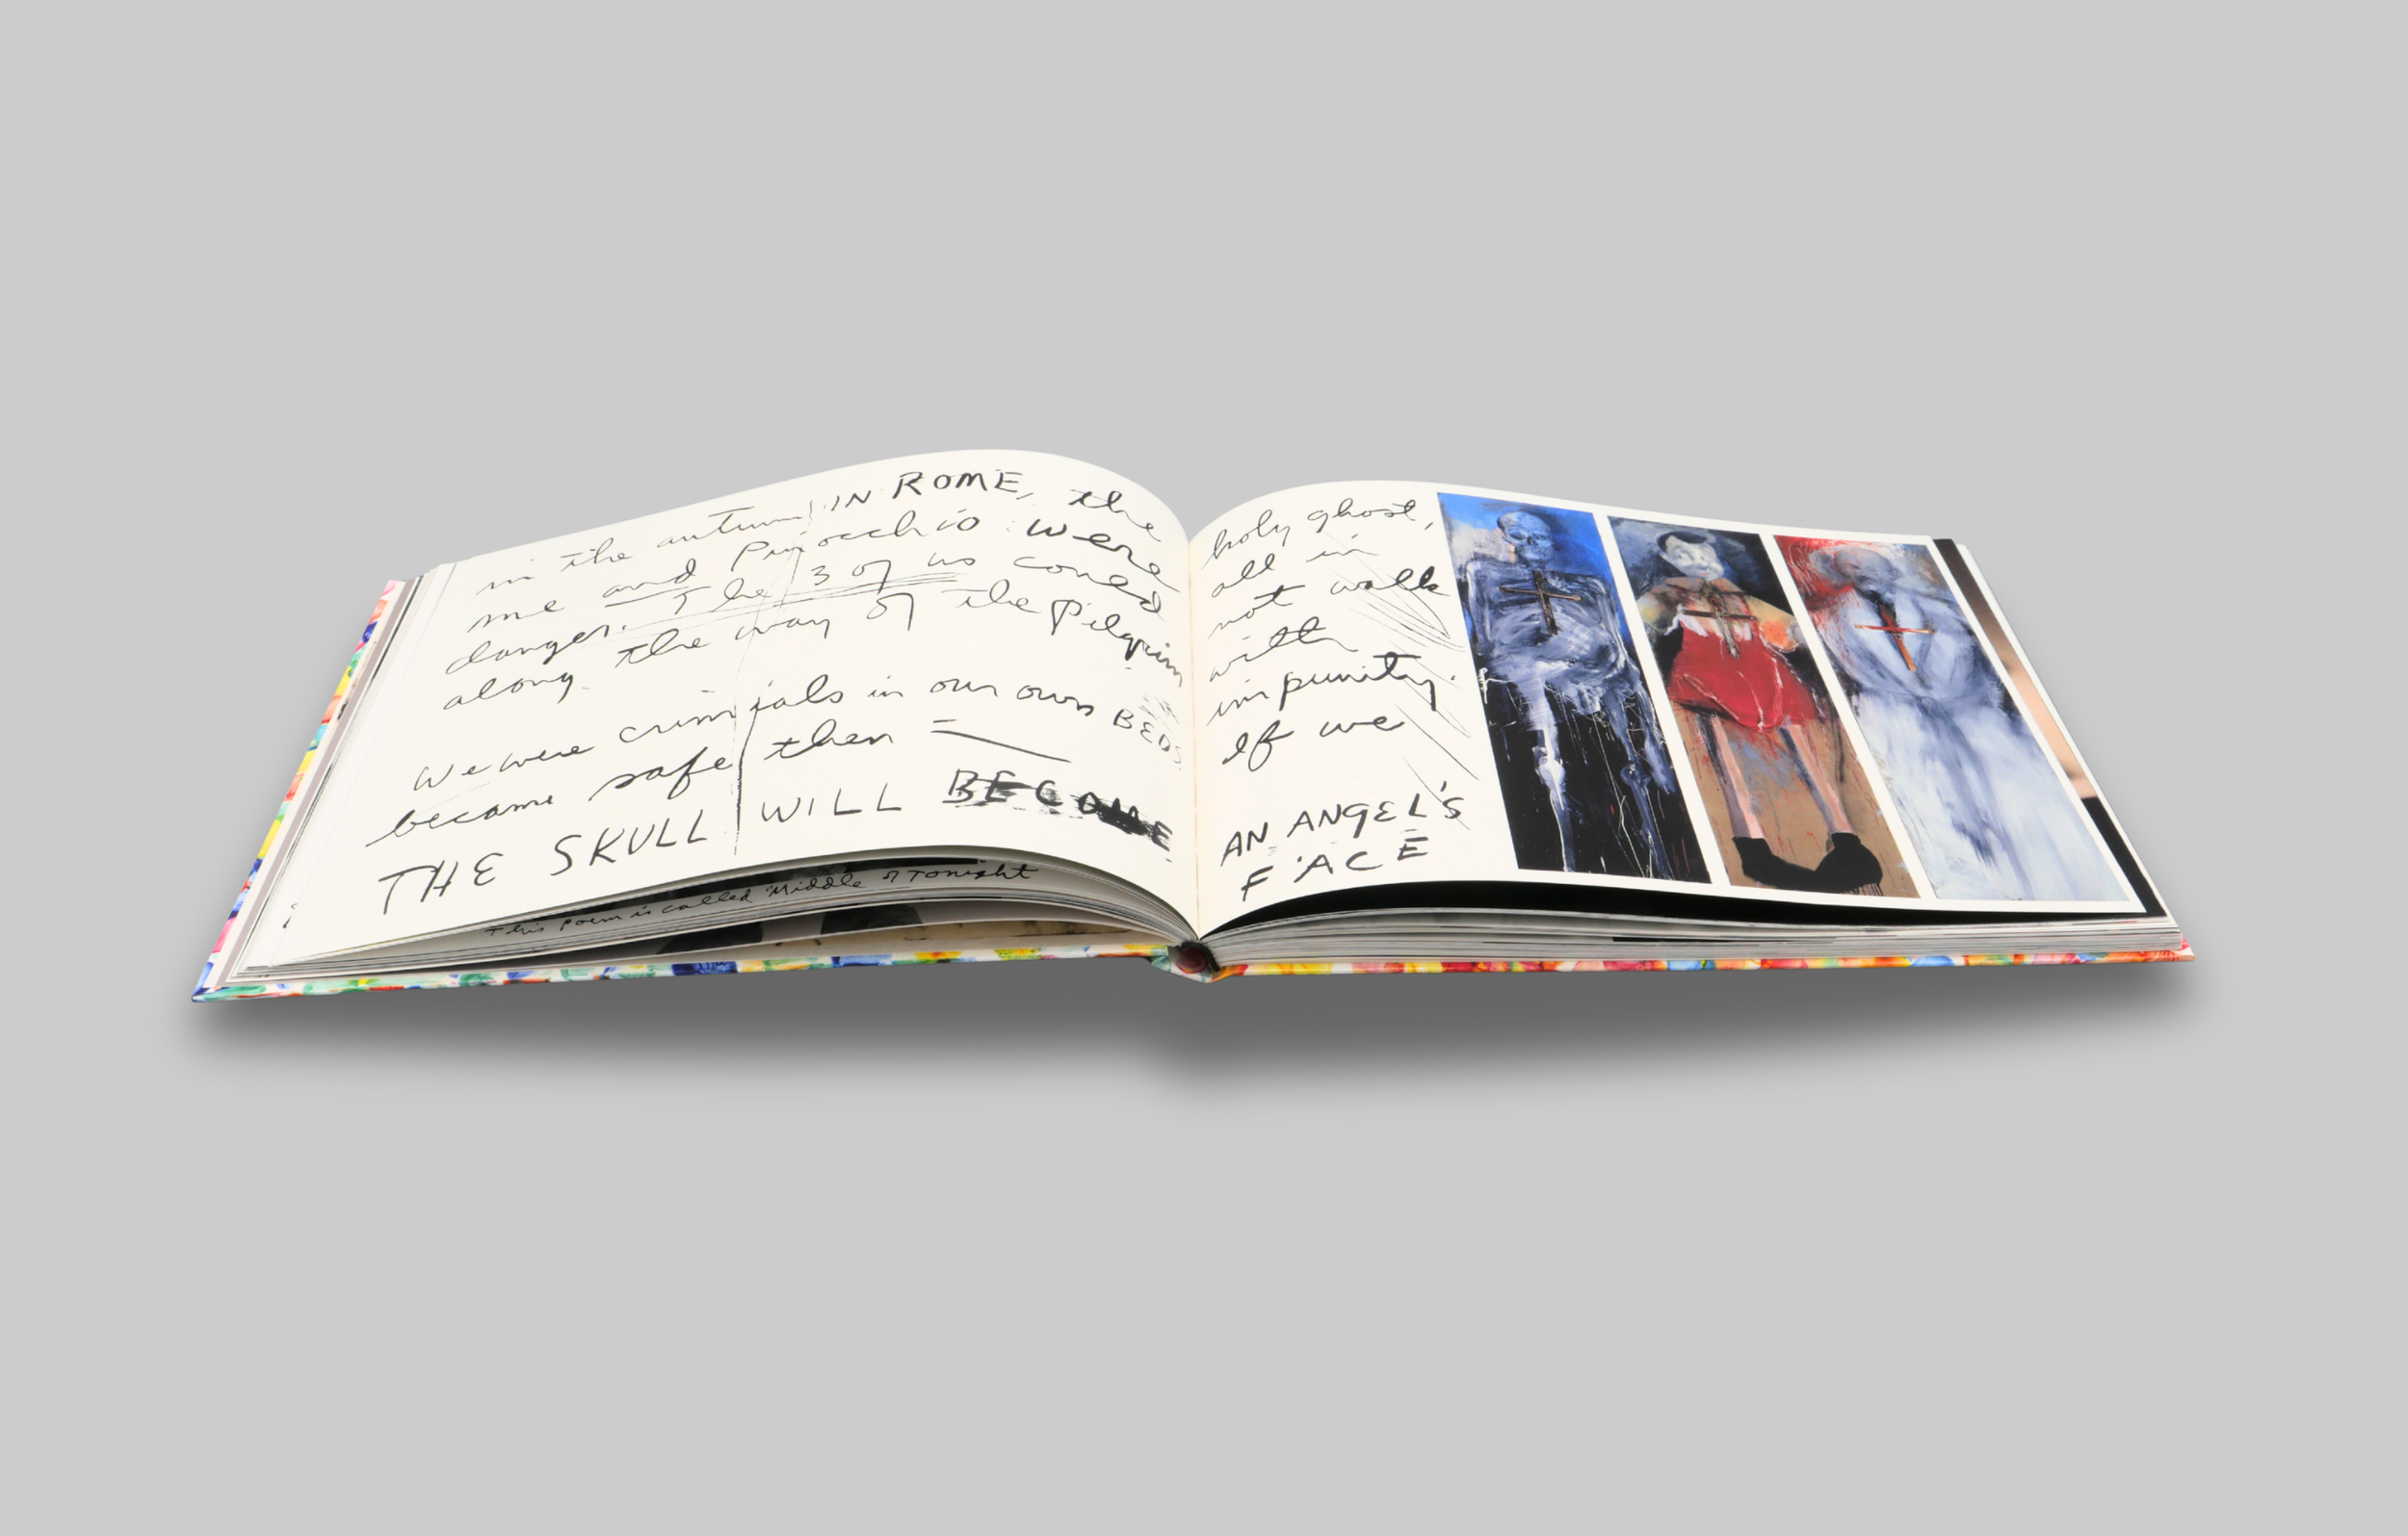 in the autumn IN ROME, the holy ghost,
me and Pinocchio were all in
danger. The 3 of us could not walk
along the way of the Pilgrim with
impunity.
We were criminals in our own BEDS. If we
became safe then
THE SKULL WILL BECOME AN ANGEL'S
FACE
This poem is called Middle of Tonight